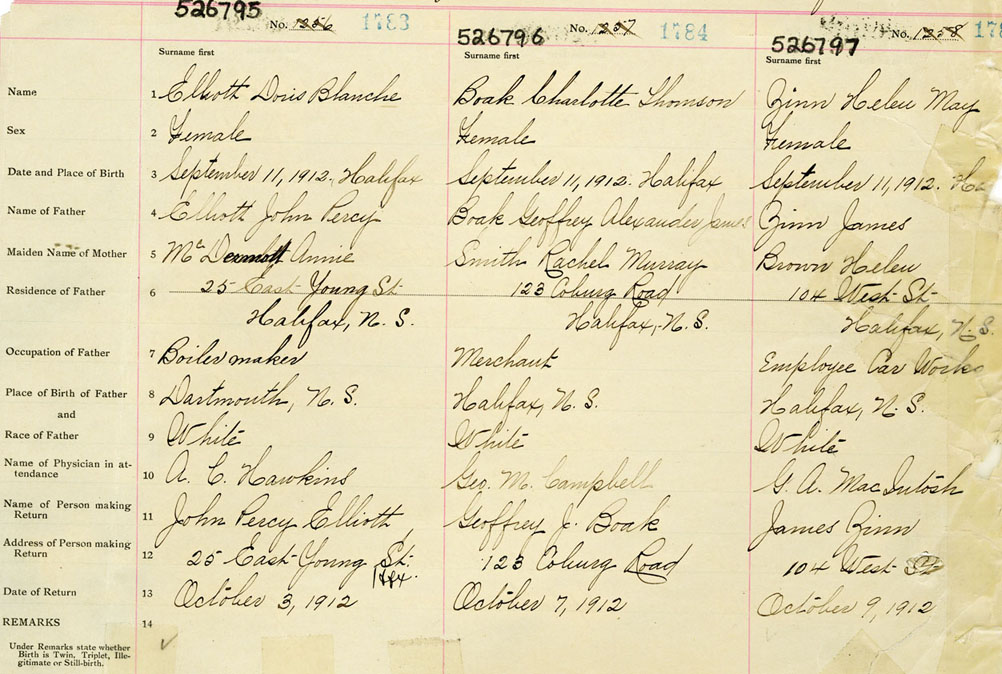 526795
No. 1256 1783
526796
No. 1257 1784
526797
No. 1258 178
Surname first
Surname first
Surname first
Name 1 Elliott Doris Blanche Boak Charlotte Thomson Zinn Helen May
Sex 2 Female Female Female
Date and Place of Birth 3 September 11, 1912. Halifax September 11, 1912. Halifax September 11, 1912. Ha
Name of Father 4 Elliott John Percy Boak Geoffrey Alexander James Zinn James
Maiden Name of Mother 5 McDermott Annie Smith Rachel Murray Brown Helen
Residence of Father 6 25 East Young St. 123 Coburg Road 104 West St.
Halifax, N.S. Halifax, N.S. Halifax, N.S.
Occupation of Father 7 Boiler maker Merchant Employee Car Works
Place of Birth of Father 8 Dartmouth, N.S. Halifax, N.S. Halifax, N.S.
and
Race of Father 9 White White White
Name of Physician in at-
tendance 10 A. C. Hawkins Geo. M. Campbell G. A. MacIntosh
Name of Person making
Return 11 John Percy Elliott Geoffrey J. Boak James Zinn
Address of Person making
Return 12 25 East Young St. 123 Coburg Road 104 West St
Hfx.
Date of Return 13 October 3, 1912 October 7, 1912 October 9, 1912
REMARKS 14
Under Remarks state whether
Birth is Twin, Triplet, Ille-
gitimate or Still-birth.